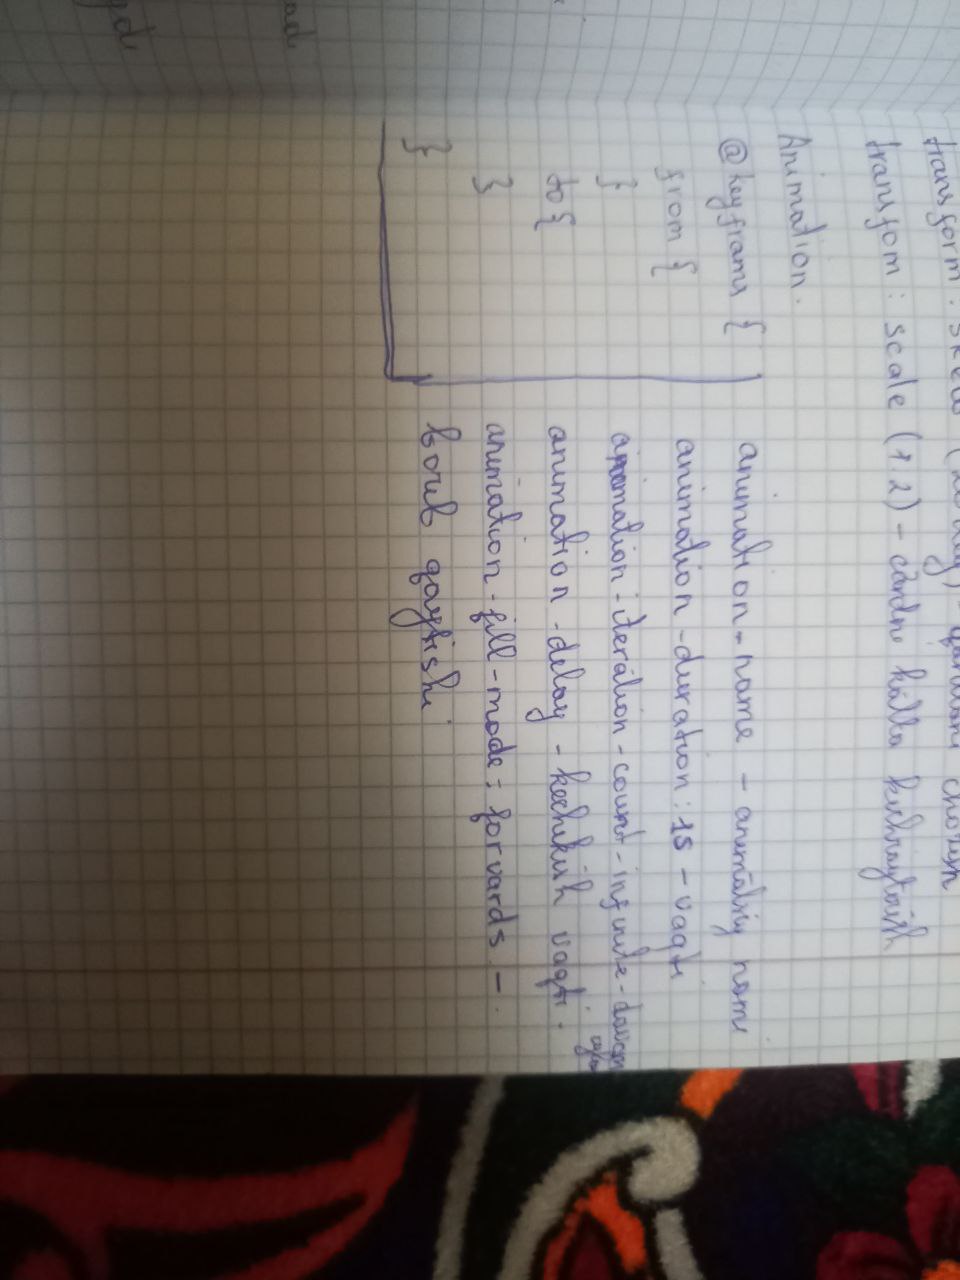 transform: skew (
transfom: scale (1.2) - cardni kattta kichraytirish
Animation.
@keyframs {
from {
}
to {
}
}
animation-name - animatsiy nomi
animation-duration: 1s - vaqti
animation-iteration-count-infinite-davom
animation-delay - kechikish vaqti.
animation-fill-mode: forvards -
borib qaytishi